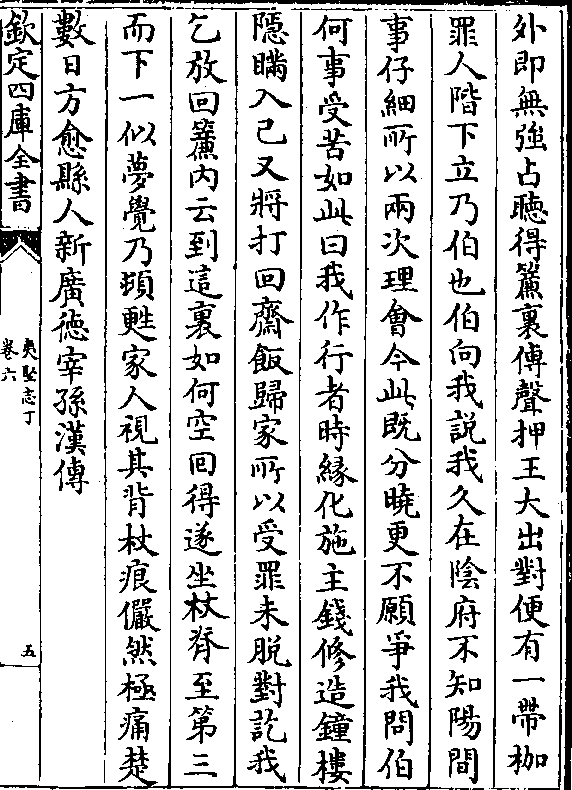 外即無強占聴得簾裏傳聲押王大出對便有一帶枷
罪人階下立乃伯也伯向我説我久在陰府不知陽間
事仔細所以兩次理會今此既分曉更不願爭我問伯
何事受苦如此曰我作行者時緣化施主錢修造鐘樓
隱瞞入己又將打回齋飯歸家所以受罪未脱對訖我
乞放回簾内云到這裏如何空囘得遂坐杖脊至第三
而下一似夢覺乃頓甦家人視其背杖痕儼然極痛楚
數日方愈縣人新廣德宰孫漢傳
欽定四庫全書
夷堅志丁
卷六
五